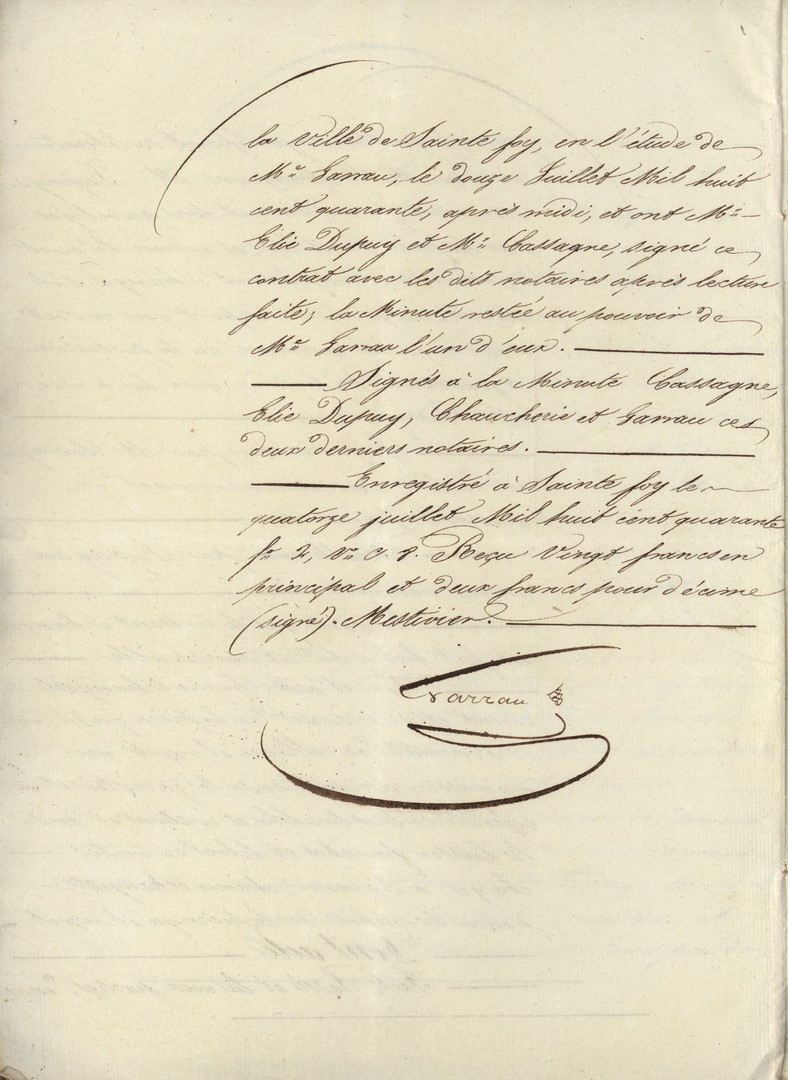 la Ville de Sainte foy, en l'étude de
Me Garrau, le douze Juillet Mil huit
cent quarante, après midi, et ont Mr
Elie Dupuy et Mr Cassagne, signé ce
contrat avec les dits notaires après lecture
faite; la Minute restée au pouvoir de
Me Garrau l'un d'eux.
Signés à la Minute Cassagne,
Elie Dupuy, Chaucherie et Garrau ces
deux derniers notaires.
Enregistré à Sainte foy le
quatorze juillet Mil huit cent quarante
fo 2, Vo c. 8. Reçu Vingt francs en
principal et deux francs pour décime
(signé). Mestivier.
Garrau